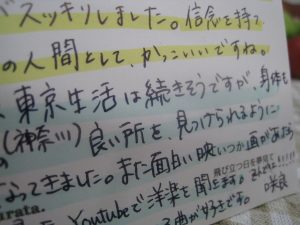 がスッキリしました。信念を持て
の人間として、かっこいいですね。
、東京生活は続きそうですが、身体も
(神奈川) 良い所を、見つけられるように
なってきました。また面白い映 いつか画があたら
飛び立つ日を夢見て
rata.
Youtubeで洋楽を聞きます♪
咲良
曲が好きです。